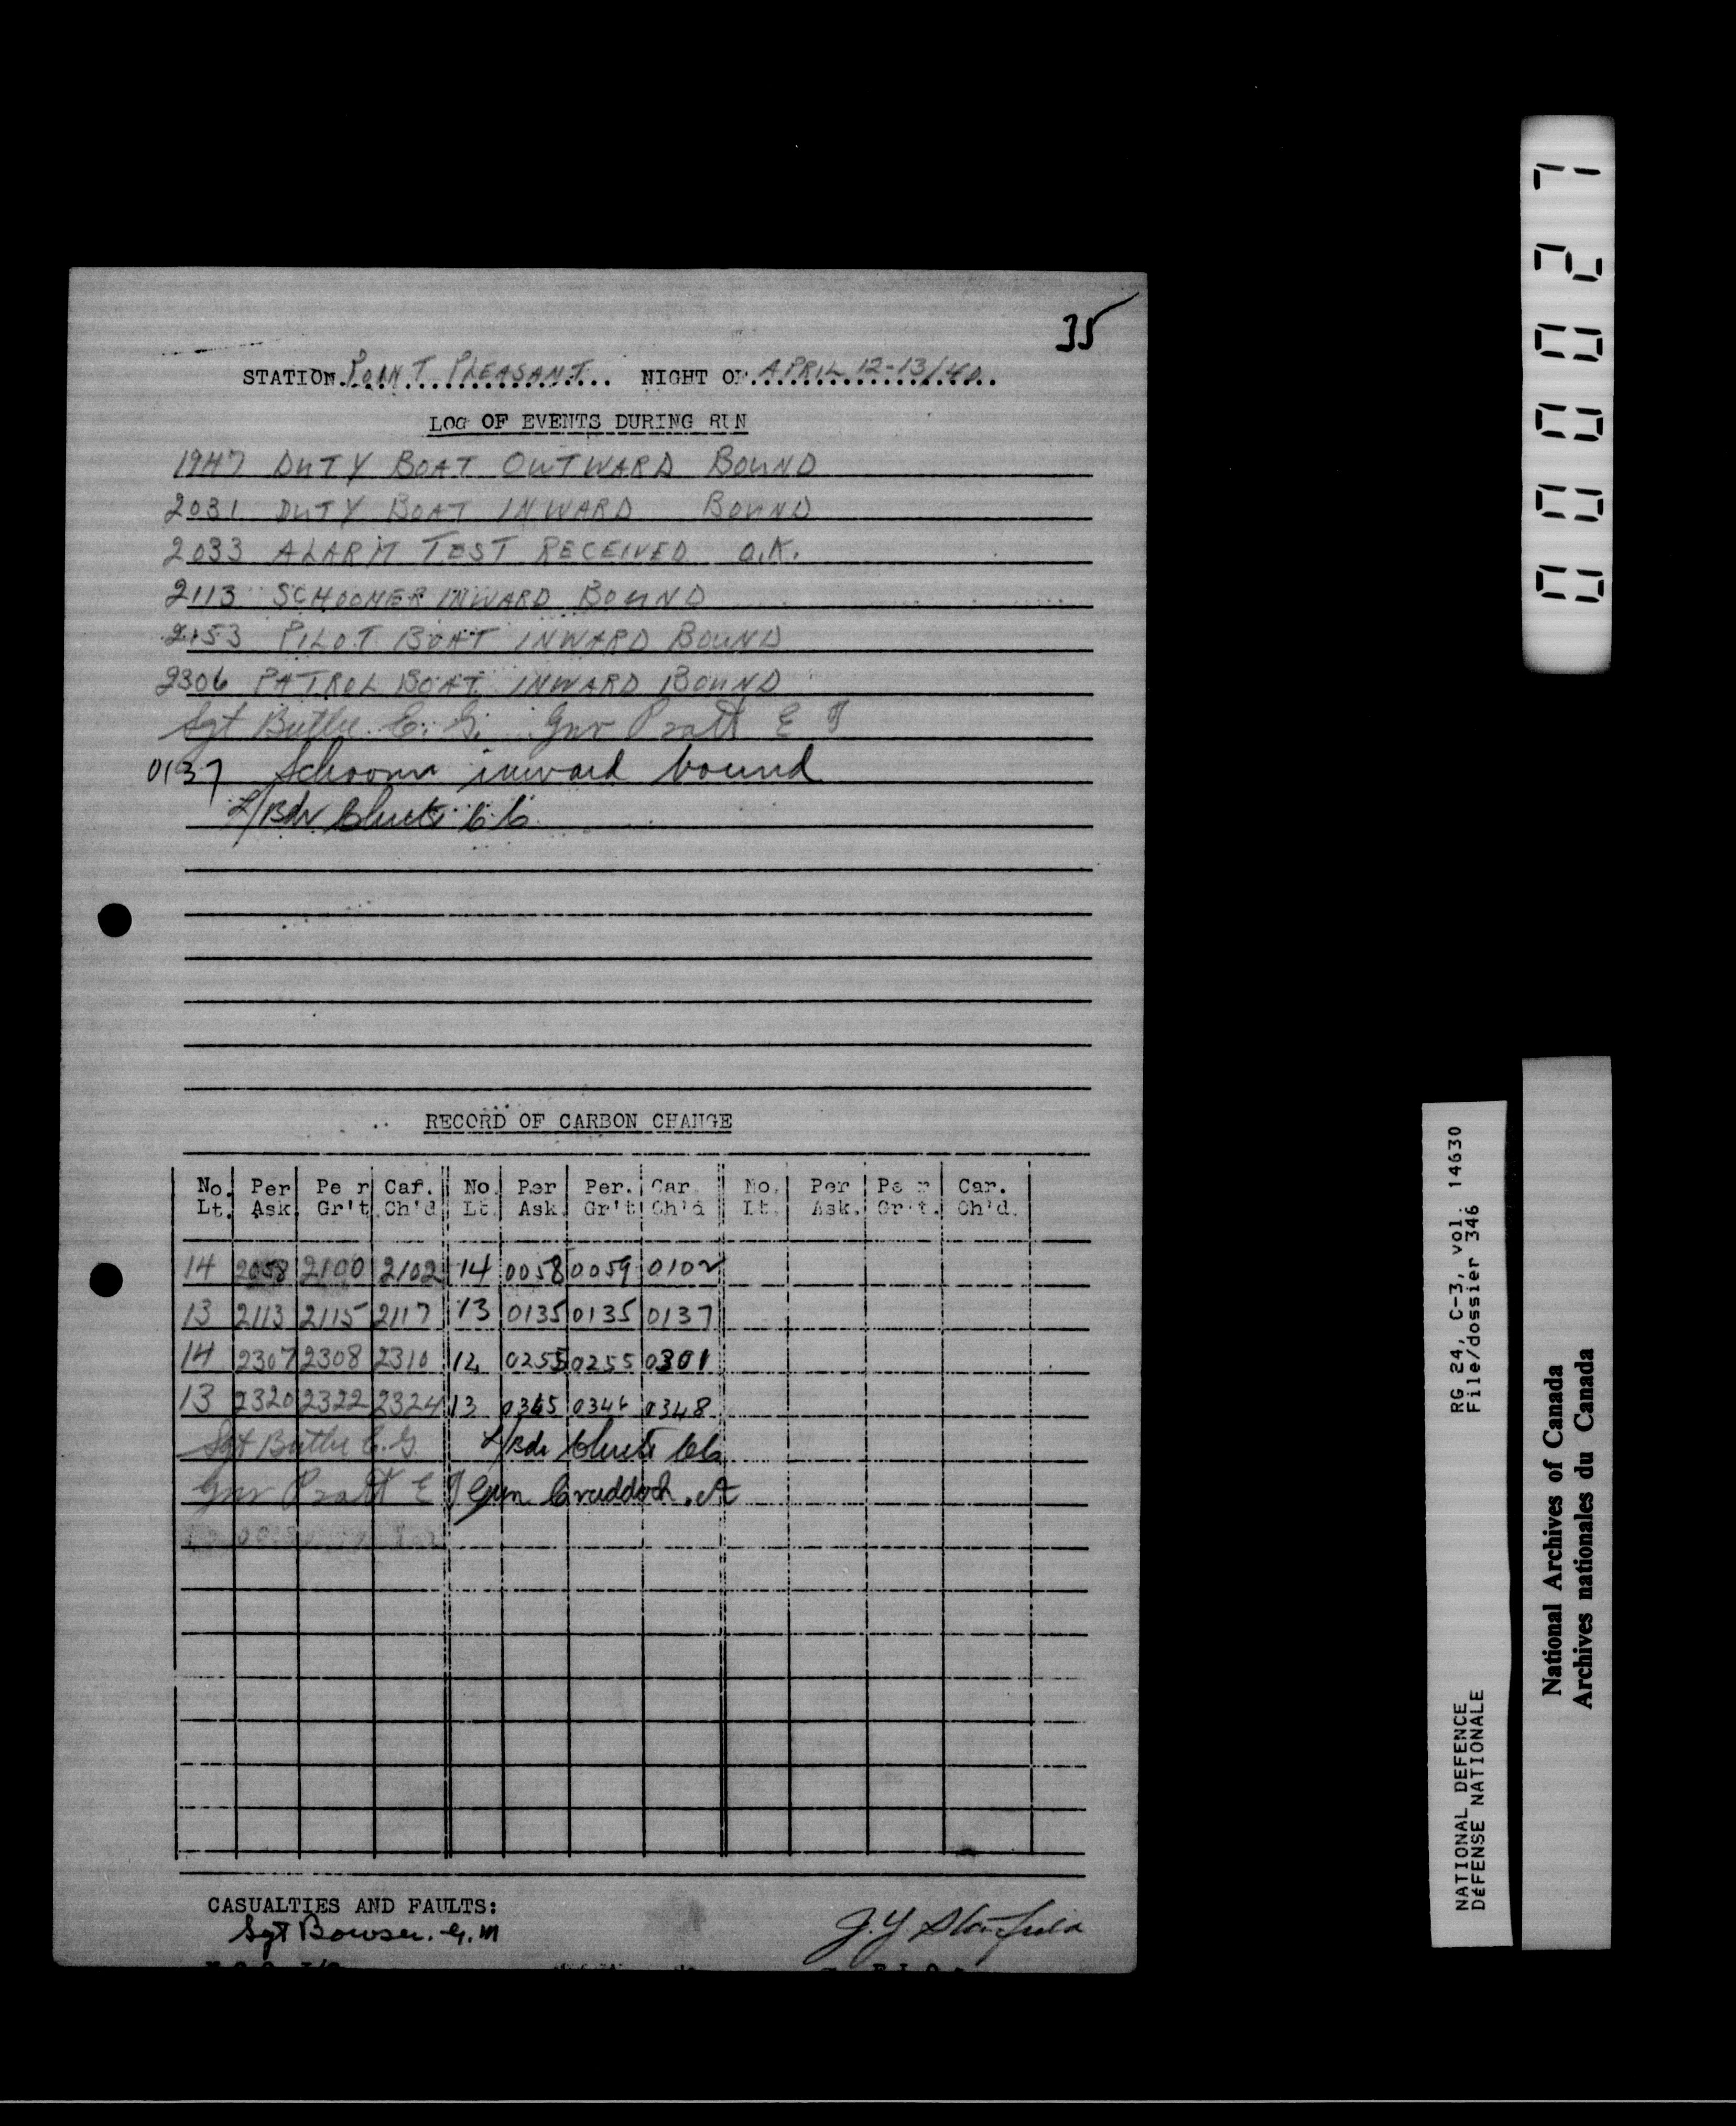 35
STATION. POINT PLEASANT. NIGHT OF. APRIL 12-13/40.
LOG OF EVENTS DURING RUN
1947 DUTY BOAT OUTWARD BOUND
2031 DUTY BOAT INWARD BOUND
2033 ALARM TEST RECEIVED O.K.
2113 SCHOONER INWARD BOUND
2153 PILOT BOAT INWARD BOUND
2306 PATROL BOAT INWARD BOUND
Sgt Butler C. G. Gnr Pratt E J
0137 Schooner inward bound
L/Bdr
RECORD OF CARBON CHANGE
No. Per Per Car. No. Per Per. Car. No. Per Per Car.
Lt. Ask. Gr't Ch'd Lt. Ask. Gr't Ch'd Lt. Ask. Gr't. Ch'd.
14 2058 2100 2102 14 0058 0059 0102
13 2113 2115 2117 13 0135 0135 0137
14 2307 2308 2310 12 0255 0255 0301
13 2320 2322 2324 13 0345 0346 0348
Sgt Butler C. G. L/Bdr
Gnr Pratt E J Gnr Craddock. A
CASUALTIES AND FAULTS:
Sgt Bowser. G. M J.Y. Stanfield
000027
RG 24, C-3, vol. 14630
File/dossier 346
NATIONAL DEFENCE
DéFENSE NATIONALE
National Archives of Canada
Archives nationales du Canada